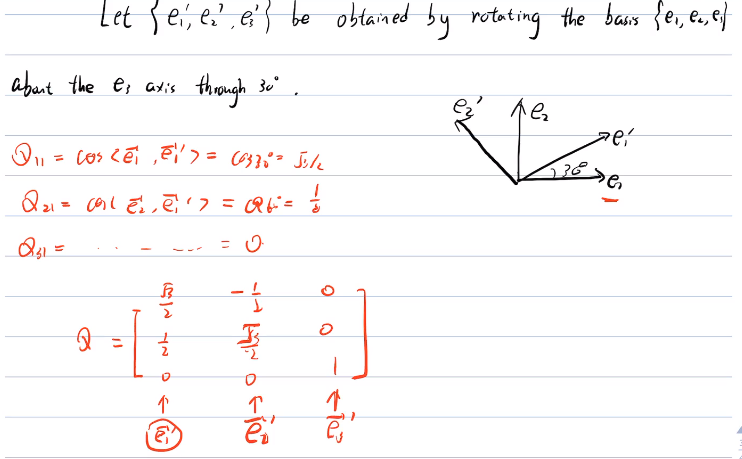 Let {e₁', e₂', e₃'} be obtained by rotating the basis {e₁, e₂, e₃}
about the e₃ axis through 30°.
e₂' e₂ e₁'
30° e₁
Q₁₁ = cos<e₁, e₁'> = cos30° = √3/2
Q₂₁ = cos<e₂, e₁'> = cos60° = 1/2
Q₃₁ = ... - ... = 0
√3/2 -1/2 0
Q = [ 1/2 √3/2 0 ]
0 0 1
↑ ↑ ↑
e₁' e₂' e₃'